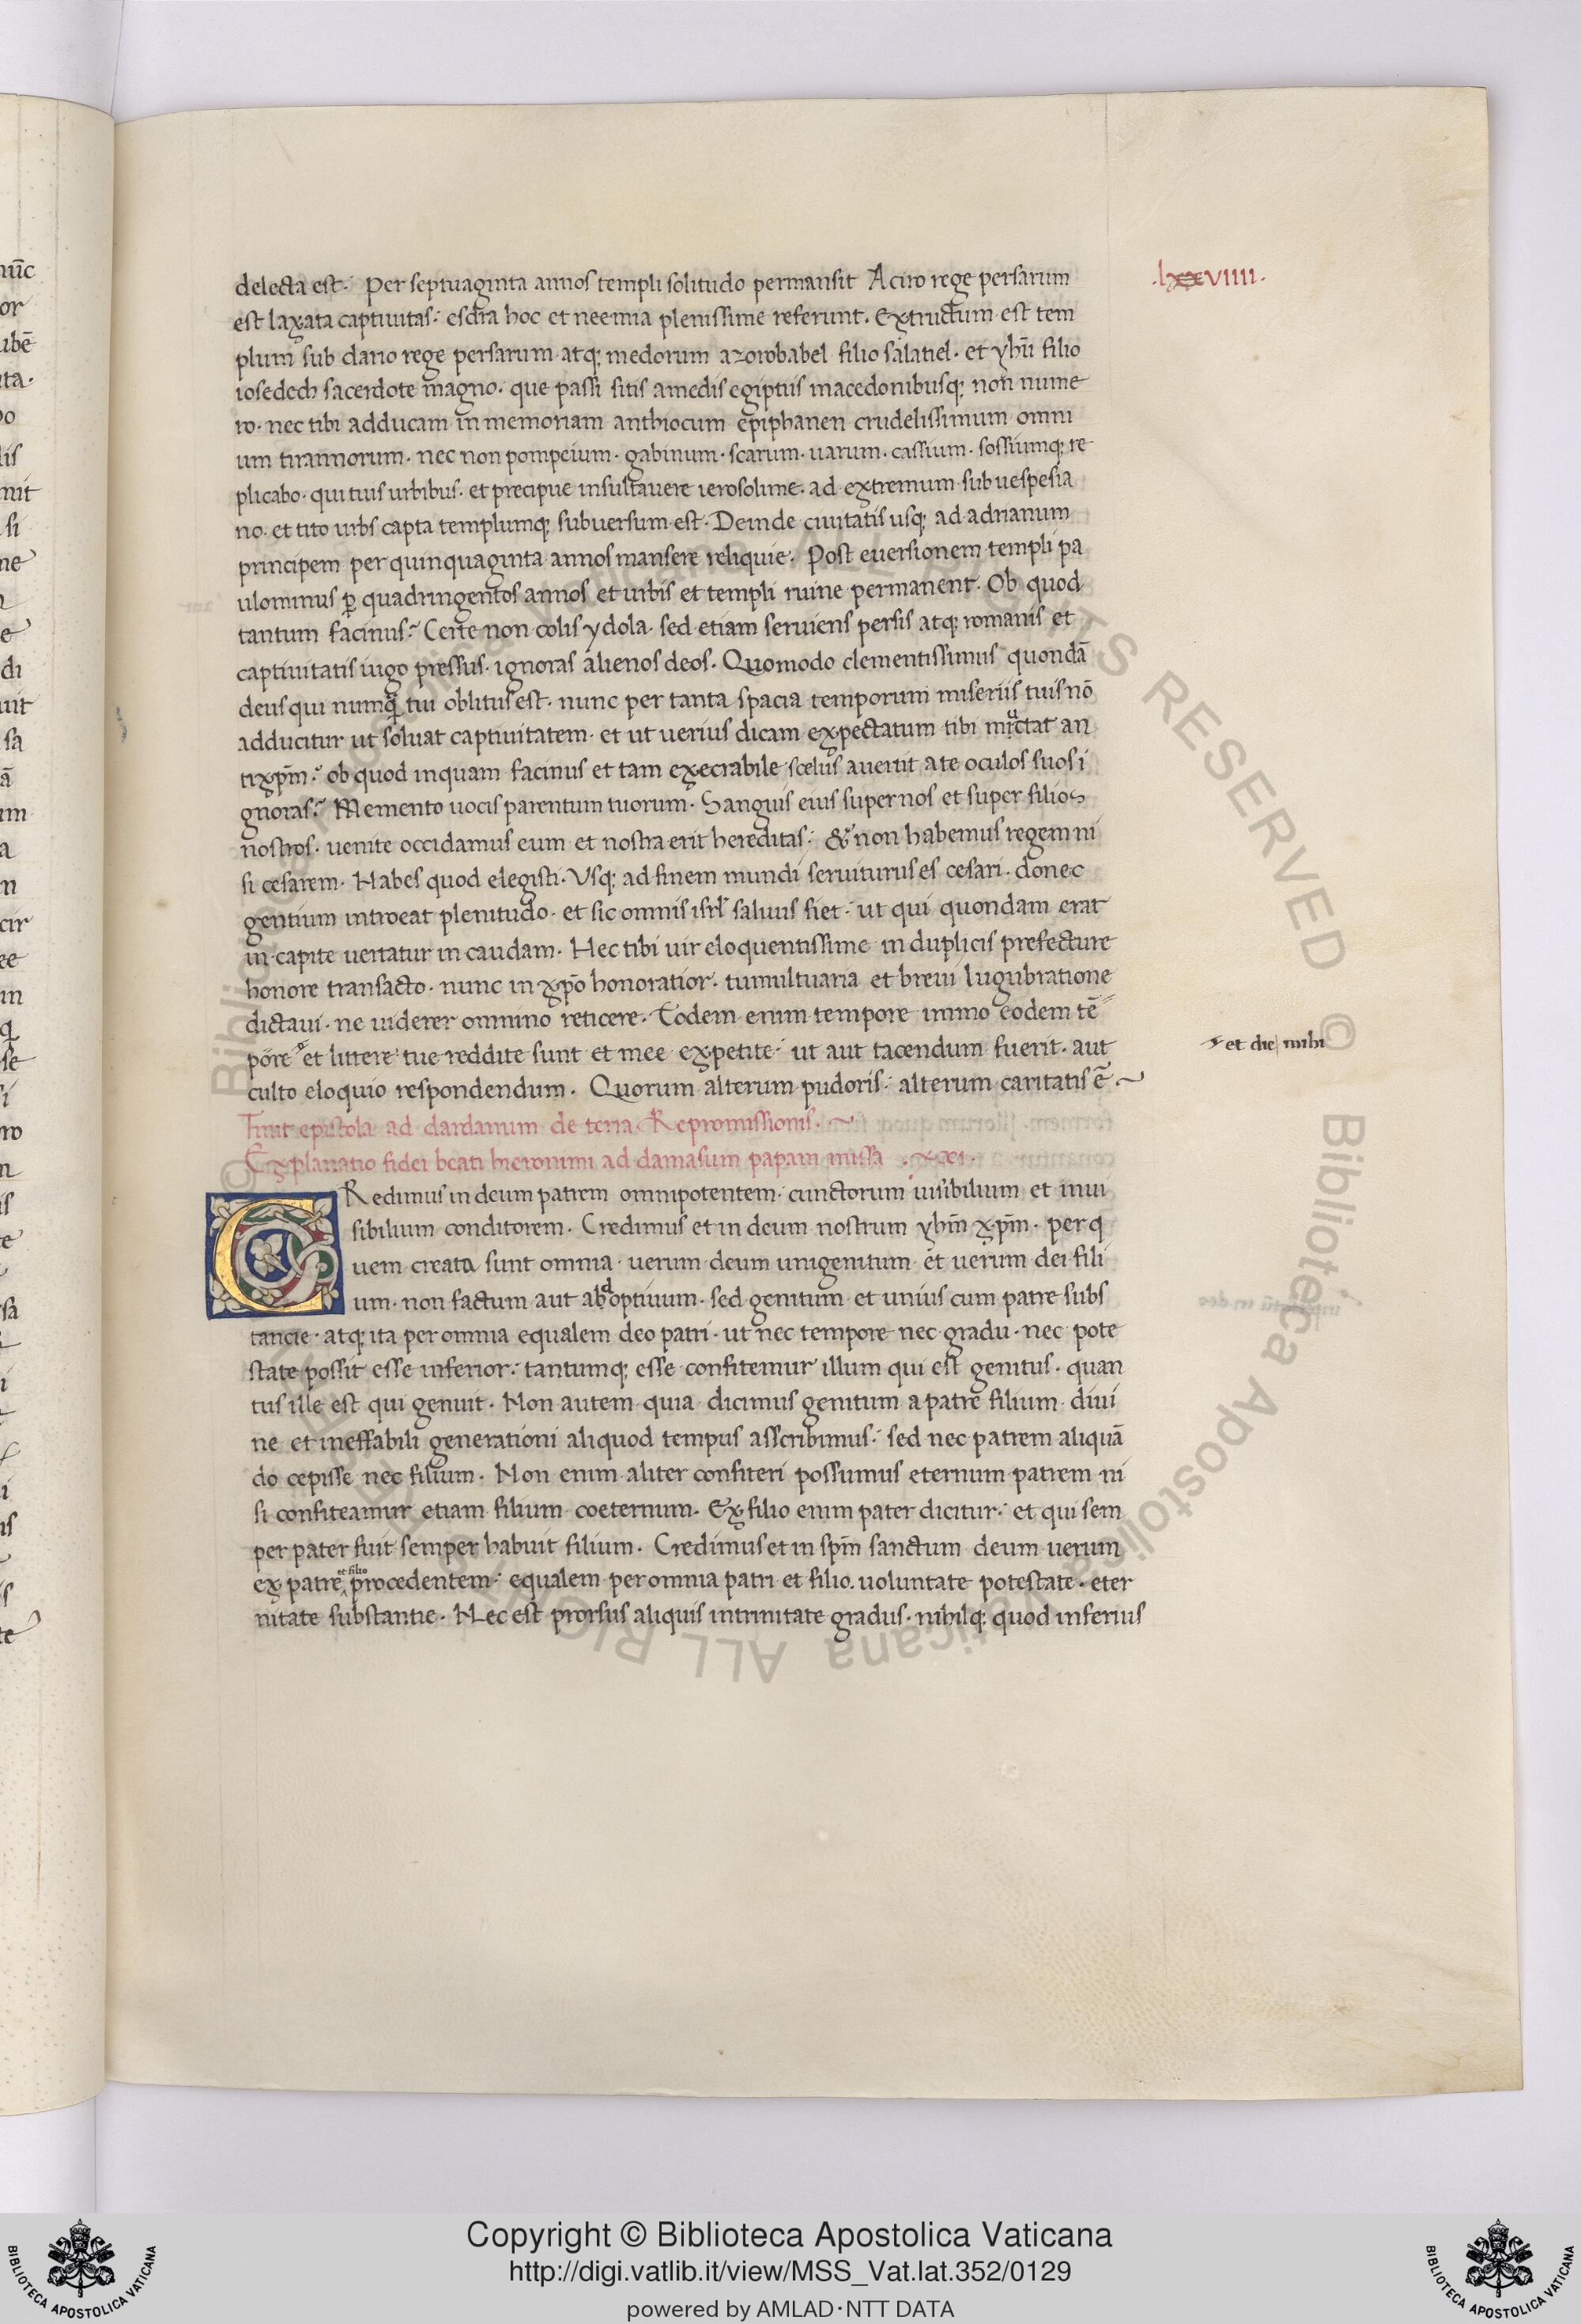 .lxxviiii.
delecta est. Per septuaginta annos templi solitudo permansit A ciro rege persarum
est laxata captiuitas: esdra hoc et neemia plenissime referunt. Extructum est tem
plum sub dario rege persarum atq; medorum azorobabel filio salatiel. et yhū filio
iosedech sacerdote magno. que passi sitis amedis egiptiis macedonibusq; non nume
ro. nec tibi adducam in memoriam anthiocum epiphanen crudelissimum omni
um tirannorum. nec non pompeium. gabinum. scarum. uarum. cassium. sossiumq; re
plicabo. qui tuis urbibus. et precipue insultauere ierosolime. ad extremum sub uespesia
no. et tito urbs capta templumq; subuersum est. Deinde ciuitatis usq; ad adrianum
principem per quinquaginta annos mansere reliquie. Post euersionem templi pa
ulominus ꝑ quadringentos annos et urbis et templi ruine permanent. Ob quod
tantum facinus? Certe non colis ydola. sed etiam seruiens persis atq; romanis et
captiuitatis iugo pressus. ignoras alienos deos. Quomodo clementissimus quondā
deus qui numq̄ tui oblitus est. nunc per tanta spacia temporum miseriis tuis nō
adducitur ut soluat captiuitatem. et ut uerius dicam expectatum tibi mictat an
tixp̄m? ob quod inquam facinus et tam execrabile scelus auertit a te oculos suos i
gnoras? Memento uocis parentum tuorum. Sanguis eius super nos et super filios
nostros. uenite occidamus eum et nostra erit hereditas: & non habemus regem ni
si cesarem. Habes quod elegisti. Vsq; ad finem mundi seruiturus es cesari. donec
gentium introeat plenitudo. et sic omnis isrl̄ saluus fiet: ut qui quondam erat
in capite uertatur in caudam. Hec tibi uir eloquentissime in duplicis prefecture
honore transacto. nunc in xp̄o honoratior. tumultuaria et breui lugubratione
dictaui. ne uiderer omnino reticere. Eodem enim tempore immo eodem tē
pore et littere tue reddite sunt et mee expetite: ut aut tacendum fuerit. aut
et die mihi
culto eloquio respondendum. Quorum alterum pudoris: alterum caritatis ē
Finit epistola ad dardanum de terra Repromissionis.
Explanatio fidei beati hieronimi ad damasum papam missa .xxi.
CRedimus in deum patrem omnipotentem. cunctorum uisibilium et inui
sibilium conditorem. Credimus et in deum nostrum yhm̄ xp̄m. per q
uem creata sunt omnia. uerum deum unigenitum et uerum dei fili
um. non factum aut abdoptiuum. sed genitum et unius cum patre subs
tancie. atq; ita per omnia equalem deo patri. ut nec tempore nec gradu. nec pote
state possit esse inferior: tantumq; esse confitemur illum qui est genitus. quan
tus ille est qui genuit. Non autem quia dicimus genitum a patre filium diui
ne et ineffabili generationi aliquod tempus asscribimus: sed nec patrem aliquā
do cepisse nec filium. Non enim aliter confiteri possumus eternum patrem ni
si confiteamur etiam filium coeternum. Ex filio enim pater dicitur: et qui sem
per pater fuit semper habuit filium. Credimus et in sp̄m sanctum deum uerum
ex patre et filio procedentem: equalem per omnia patri et filio. uoluntate potestate. eter
nitate substantie. Nec est prorsus aliquis in trinitate gradus. nihilq; quod inferius
Copyright © Biblioteca Apostolica Vaticana
http://digi.vatlib.it/view/MSS_Vat.lat.352/0129
powered by AMLAD·NTT DATA
BIBLIOTECA APOSTOLICA VATICANA
BIBLIOTECA APOSTOLICA VATICANA